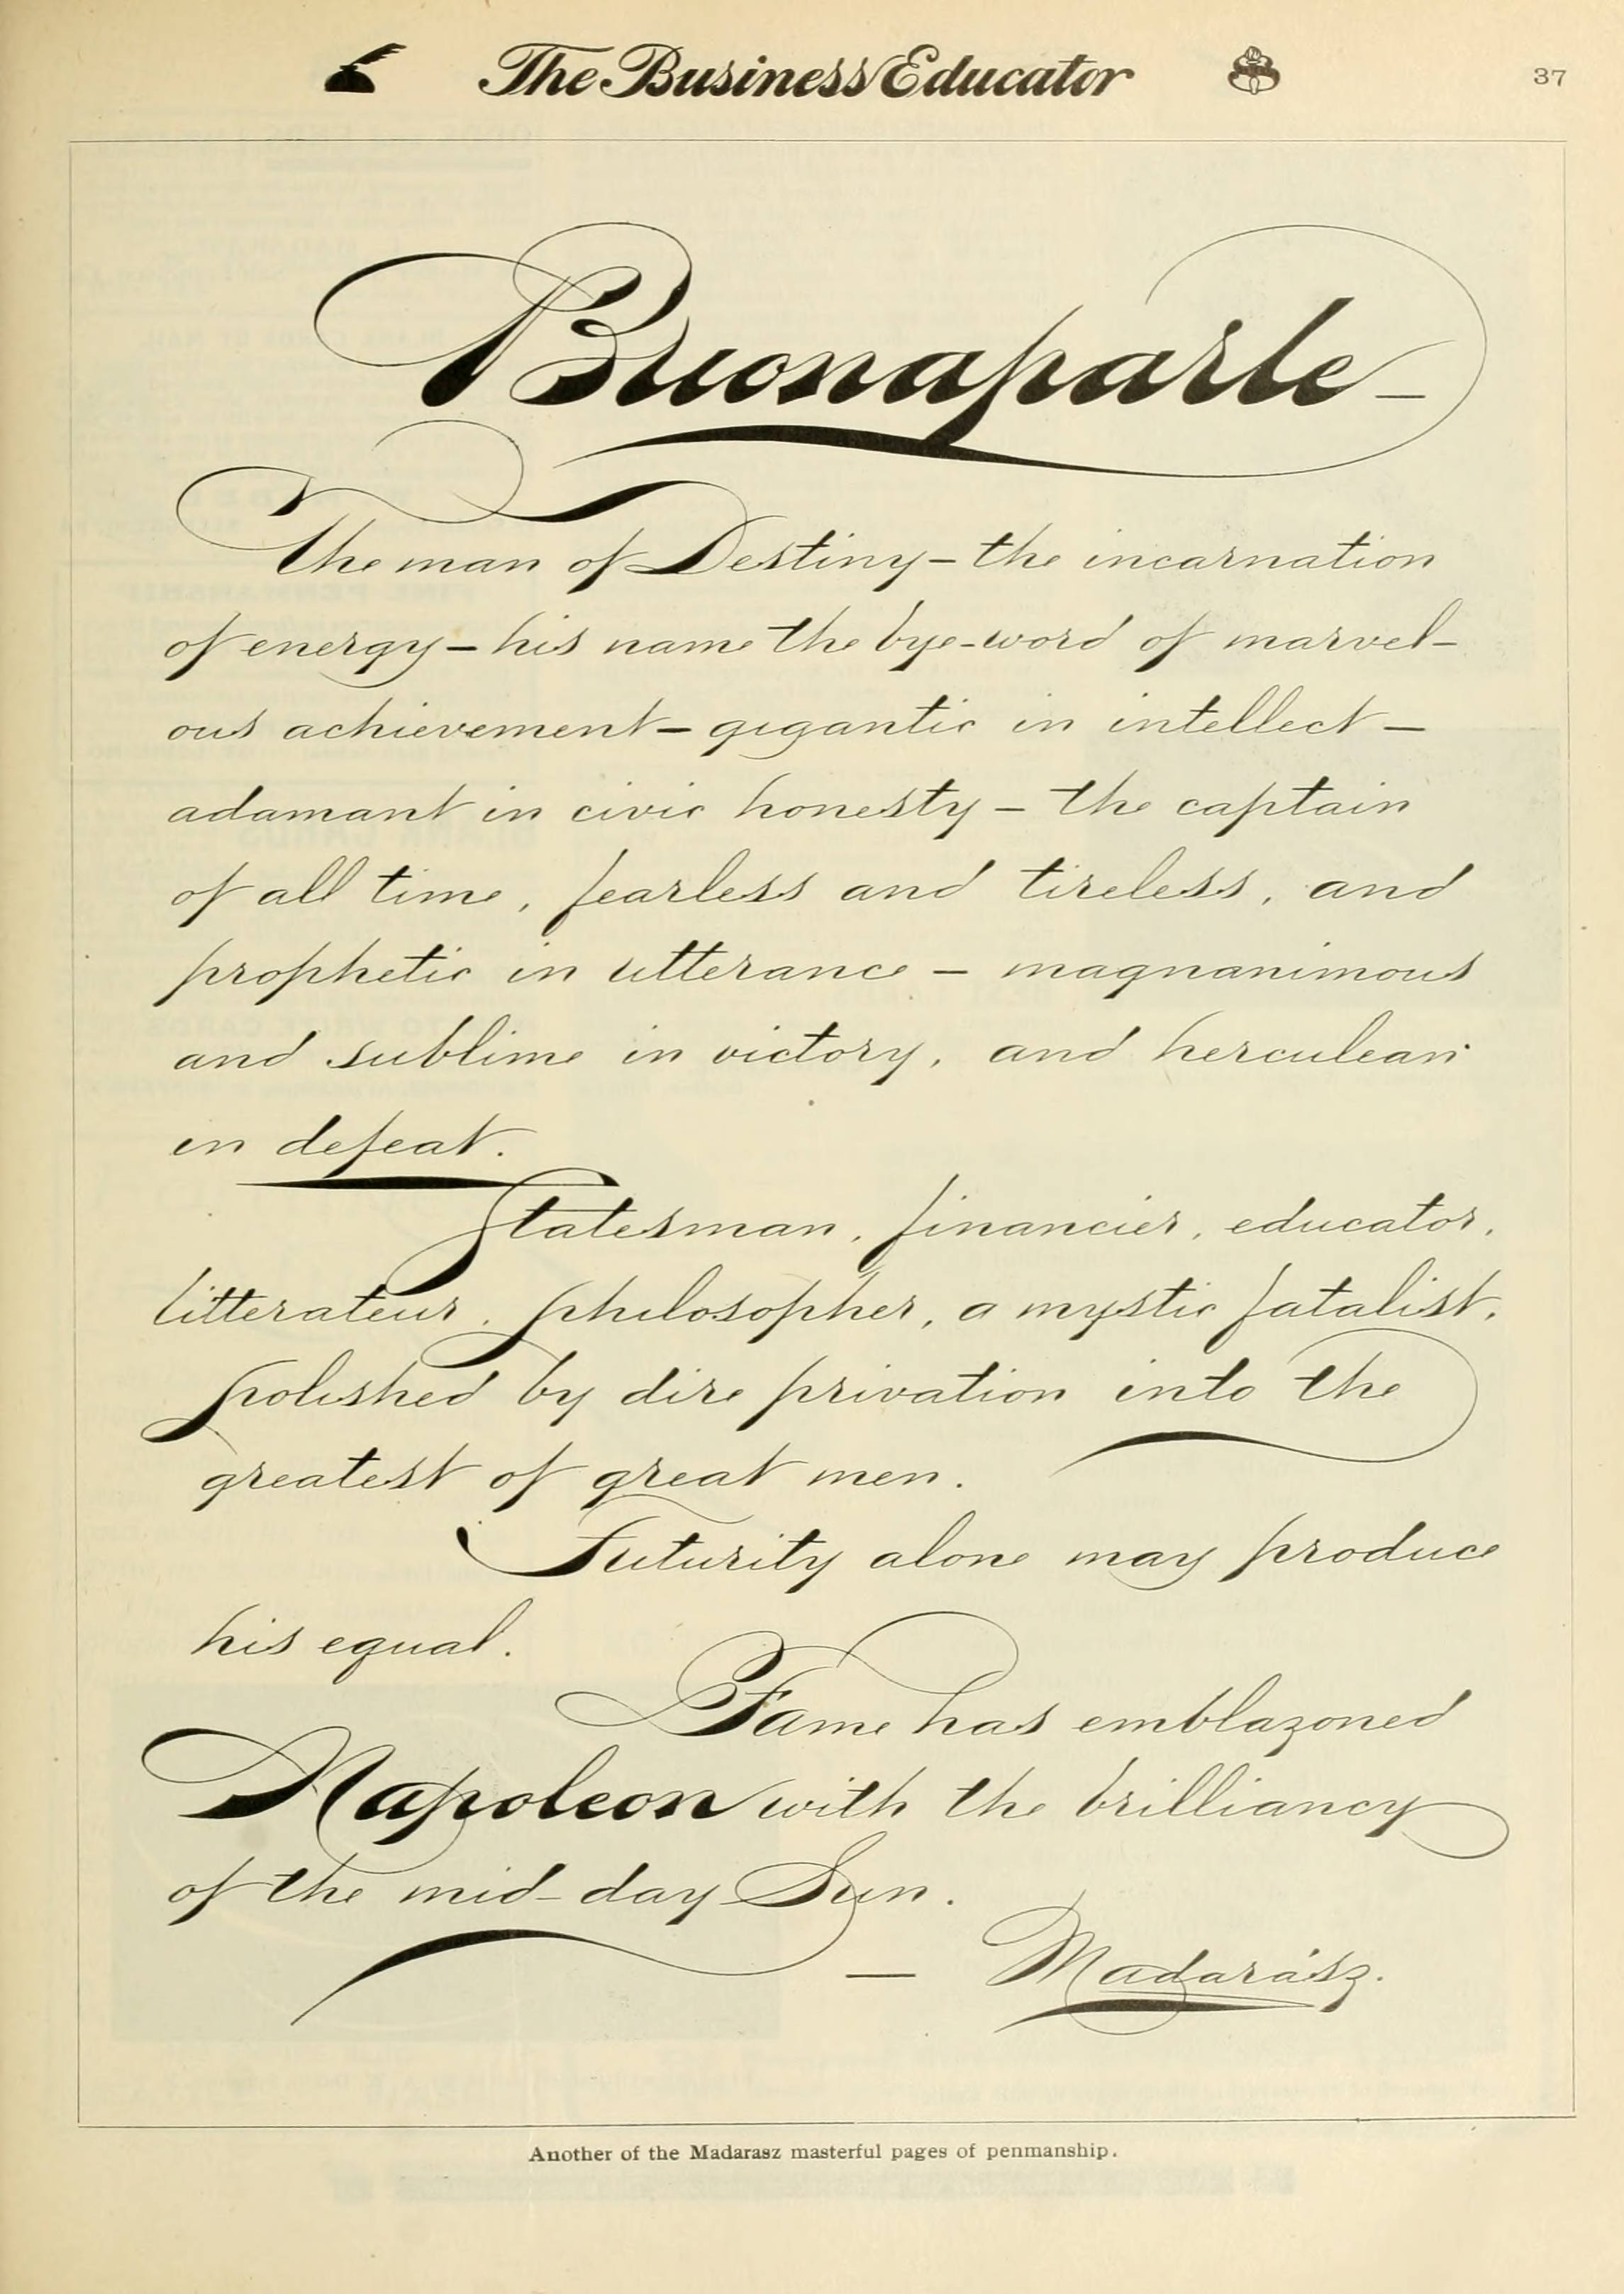 The Business Educator
37
Buonaparte –
The man of Destiny – the incarnation
of energy – his name the bye-word of marvel-
ous achievement – gigantic in intellect –
adamant in civic honesty – the captain
of all time, fearless and tireless, and
prophetic in utterance – magnanimous
and sublime in victory, and herculean
in defeat.
Statesman, financier, educator,
litterateur, philosopher, a mystic fatalist,
polished by dire privation into the
greatest of great men.
Futurity alone may produce
his equal.
Fame has emblazoned
Napoleon with the brilliancy
of the mid-day Sun.
– Madarász.
Another of the Madarasz masterful pages of penmanship.